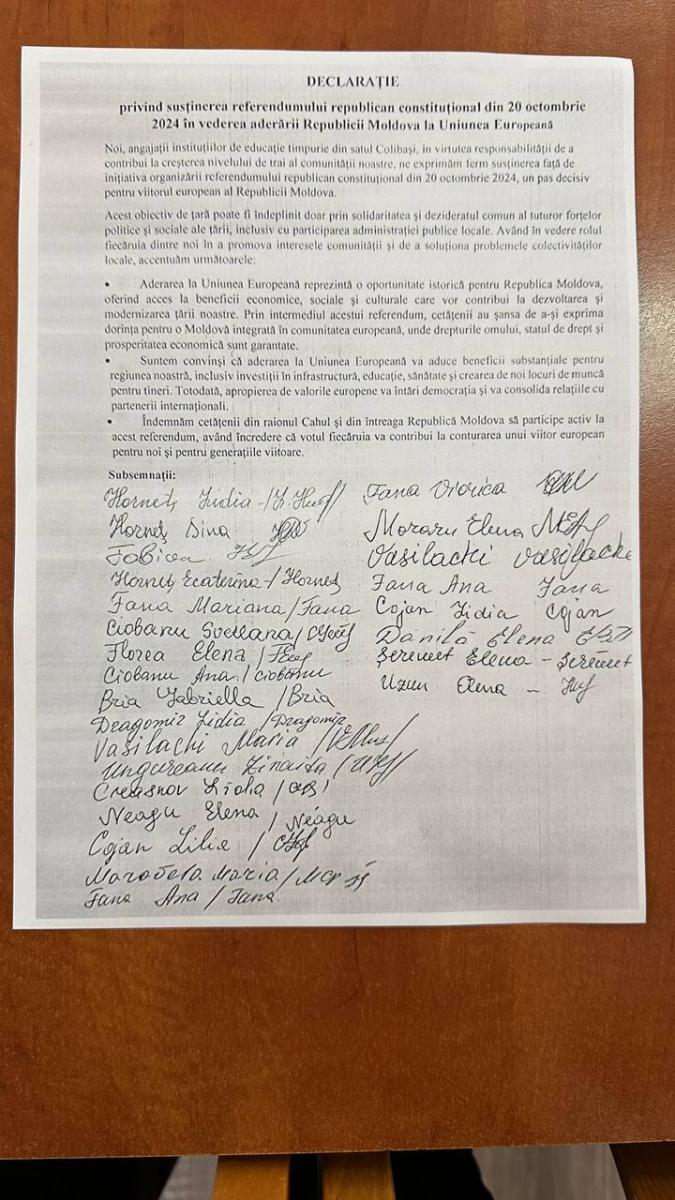 DECLARAȚIE
privind susținerea referendumului republican constituțional din 20 octombrie
2024 în vederea aderării Republicii Moldova la Uniunea Europeană
Noi, angajații instituțiilor de educație timpurie din satul Colibași, în virtutea responsabilității de a
contribui la creșterea nivelului de trai al comunității noastre, ne exprimăm ferm susținerea față de
inițiativa organizării referendumului republican constituțional din 20 octombrie 2024, un pas decisiv
pentru viitorul european al Republicii Moldova.
Acest obiectiv de țară poate fi îndeplinit doar prin solidaritatea și dezideratul comun al tuturor forțelor
politice și sociale ale țării, inclusiv cu participarea administrației publice locale. Având în vedere rolul
fiecăruia dintre noi în a promova interesele comunității și de a soluționa problemele colectivităților
locale, accentuăm următoarele:
• Aderarea la Uniunea Europeană reprezintă o oportunitate istorică pentru Republica Moldova,
oferind acces la beneficii economice, sociale și culturale care vor contribui la dezvoltarea și
modernizarea țării noastre. Prin intermediul acestui referendum, cetățenii au șansa de a-și exprima
dorința pentru o Moldovă integrată în comunitatea europeană, unde drepturile omului, statul de drept și
prosperitatea economică sunt garantate.
• Suntem convinși că aderarea la Uniunea Europeană va aduce beneficii substanțiale pentru
regiunea noastră, inclusiv investiții în infrastructură, educație, sănătate și crearea de noi locuri de muncă
pentru tineri. Totodată, apropierea de valorile europene va întări democrația și va consolida relațiile cu
partenerii internaționali.
• Îndemnăm cetățenii din raionul Cahul și din întreaga Republică Moldova să participe activ la
acest referendum, având încredere că votul fiecăruia va contribui la conturarea unui viitor european
pentru noi și pentru generațiile viitoare.
Subsemnații:
Horneț Lidia
Horneț Dina
Horneț Ecaterina / Horneț
Fana Mariana / Fana
Ciobanu Svetlana
Florea Elena
Ciobanu Ana / Ciobanu
Bria Gabriella / Bria
Dragomir Lidia / Dragomir
Vasilachi Maria
Ungureanu Zinaida
Lidia
Neagu Elena / Neagu
Cojan Lilia
Maria
Fana Ana / Fana
Fana Viorica
Moraru Elena
Vasilachi
Fana Ana Fana
Cojan Lidia Cojan
Danilă Elena
Șeremet Elena - Șeremet
Uzun Elena -